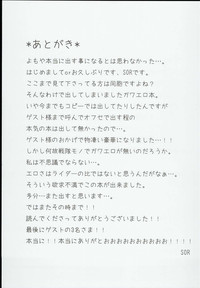 *あとがき*
よもや本当に出す事になるとは思わなかった…。
はじめましてorお久しぶりです、SDRです。
ここまで見て下さってる方は同胞ですよね?
そんなわけで出してしまいましたガウエロ本。
いや今までもコピーでは出してたりしたんですが
ゲスト様まで呼んでオフセで出す程の
本気の本は出して無かったので…
ゲスト様のおかげで物凄い豪華になりました…!!
しかし何故戦隊モノでガウエロが無いのだろうか。
私は不思議でならない…
エロさではライダーでは無いと思うんだがなぁ…。
そういう欲求不満でこの本が出来ました。
多分…また出すと思います…
ではまたその時まで!!
読んでくださってありがとうございました!!
最後にゲストの3名さま!!
本当に!!本当にありがとおおおおおおおおお!!!!
SDR